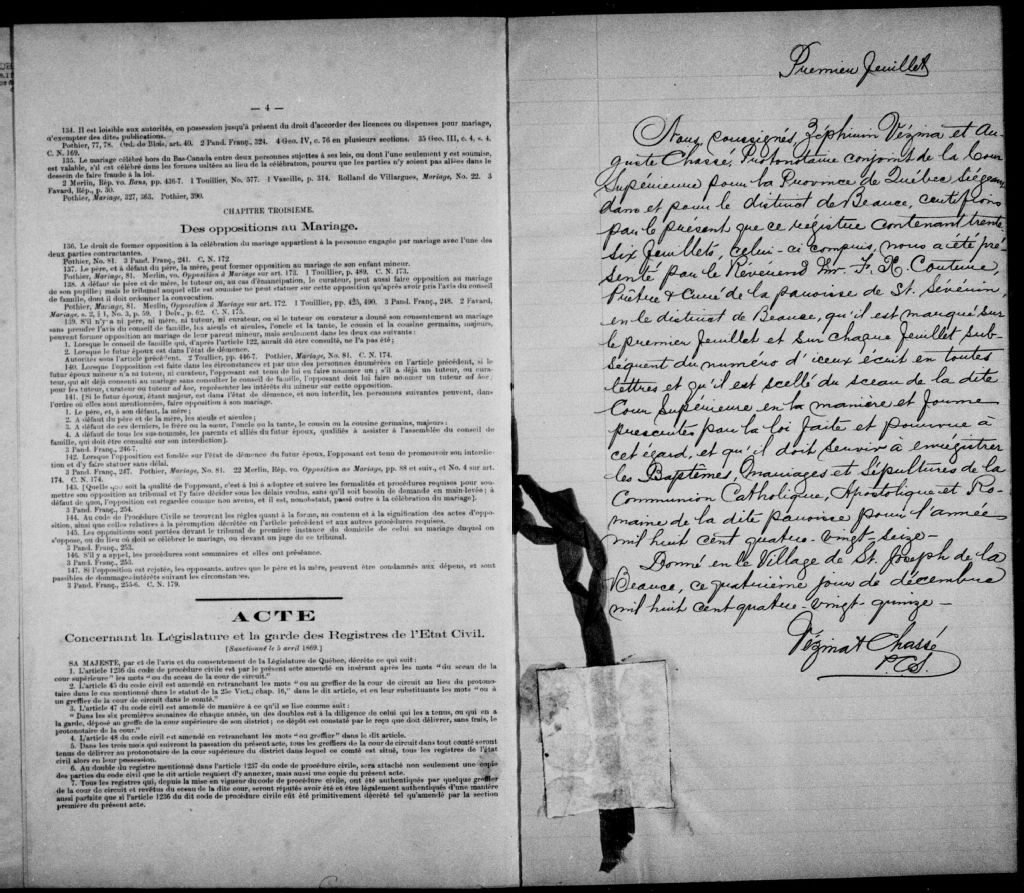 — 4 —
134. Il est loisible aux autorités, en possession jusqu'à présent du droit d'accorder des licences ou dispenses pour mariage,
d'exempter des dites publications.
Pothier, 77, 78. Ord. de Blois, art. 40. 2 Pand. Franç., 324. 4 Geo. IV, c. 76 en plusieurs sections. 35 Geo. III, c. 4, s. 4.
C. N. 169.
135. Le mariage célébré hors du Bas-Canada entre deux personnes sujettes à ses lois, ou dont l'une seulement y est soumise,
est valable, s'il est célébré dans les formes usitées au lieu de la célébration, pourvu que les parties n'y soient pas allées dans le
dessein de faire fraude à la loi.
2 Merlin, Rép. vo. Bans, pp. 436-7. 1 Touillier, No. 577. 1 Vazeille, p. 314. Rolland de Villargues, Mariage, No. 22. 3
Favard, Rép., p. 50.
Pothier, Mariage, 327, 363. Pothier, 390.
CHAPITRE TROISIEME.
Des oppositions au Mariage.
136. Le droit de former opposition à la célébration du mariage appartient à la personne engagée par mariage avec l'une des
deux parties contractantes.
Pothier, No. 81. 3 Pand. Franç., 241. C. N. 172
137. Le père, et à défaut du père, la mère, peut former opposition au mariage de son enfant mineur.
Pothier, Mariage, 81. Merlin, vo. Opposition à Mariage sur art. 173. 1 Touillier, p. 489. C. N. 173.
138. A défaut de père et de mère, le tuteur ou, au cas d'émancipation, le curateur, peut ainsi faire opposition au mariage
de son pupille; mais le tribunal auquel elle est soumise ne peut statuer sur cette opposition qu'après avoir pris l'avis du conseil
de famille, dont il doit ordonner la convocation.
Pothier, Mariage, 81. Merlin, Opposition à Mariage sur art. 172. 1 Touillier, pp. 425, 490. 3 Pand. Franç., 248. 2 Favard,
Mariage, s. 2, § 1, No. 3, p. 59. 1 Delv., p. 62. C. N. 175.
139. S'il n'y a ni père, ni mère, ni tuteur, ni curateur, ou si le tuteur ou curateur a donné son consentement au mariage
sans prendre l'avis du conseil de famille, les aïeuls et aïeules, l'oncle et la tante, le cousin et la cousine germains, majeurs,
peuvent former opposition au mariage de leur parent mineur, mais seulement dans les deux cas suivants:
1. Lorsque le conseil de famille qui, d'après l'article 122, aurait dû être consulté, ne l'a pas été;
2. Lorsque le futur époux est dans l'état de démence.
Autorités sous l'article précédent. 2 Touiller, pp. 446-7. Pothier, Mariage, No. 81. C. N. 174.
140. Lorsque l'opposition est faite dans les circonstances et par une des personnes énumérées en l'article précédent, si le
futur époux mineur n'a ni tuteur, ni curateur, l'opposant est tenu de lui en faire nommer un; s'il a déjà un tuteur, ou cura-
teur, qui ait déjà consenti au mariage sans consulter le conseil de famille, l'opposant doit lui faire nommer un tuteur ad hoc,
pour les tuteur, curateur ou tuteur ad hoc, représenter les intérêts du mineur sur cette opposition.
141. [Si le futur époux, étant majeur, est dans l'état de démence, et non interdit, les personnes suivantes peuvent, dans
l'ordre où elles sont mentionnées, faire opposition à son mariage.
1. Le père, et, à son défaut, la mère;
2. A défaut du père et de la mère, les aïeuls et aïeules;
3. A défaut de ces derniers, le frère ou la sœur, l'oncle ou la tante, le cousin ou la cousine germains, majeurs;
4. A défaut de tous les sus-nommés, les parents et alliés du futur époux, qualifiés à assister à l'assemblée du conseil de
famille, qui doit être consulté sur son interdiction].
3 Pand. Franç., 246-7.
142. Lorsque l'opposition est fondée sur l'état de démence du futur époux, l'opposant est tenu de promouvoir son interdic-
tion et d'y faire statuer sans délai.
3 Pand. Franç., 247. Pothier, Mariage, No. 81. 22 Merlin, Rép. vo. Opposition au Mariage, pp. 88 et suiv., et No. 4 sur art.
174. C. N. 174.
143. [Quelle que soit la qualité de l'opposant, c'est à lui à adopter et suivre les formalités et procédures requises pour sou-
mettre son opposition au tribunal et l'y faire décider sous les délais voulus, sans qu'il soit besoin de demande en main-levée; à
défaut de quoi, l'opposition est regardée comme non avenue, et il est, nonobstant, passé outre à la célébration du mariage].
3 Pand. Franç., 254.
144. Au code de Procédure Civile se trouvent les règles quant à la forme, au contenu et à la signification des actes d'oppo-
sition, ainsi que celles relatives à la péremption décrétée en l'article précédent et aux autres procédures requises.
145. Les oppositions sont portées devant le tribunal de première instance du domicile de celui au mariage duquel on
s'oppose, ou du lieu où doit se célébrer le mariage, ou devant un juge de ce tribunal.
3 Pand. Franç., 253.
146. S'il y a appel, les procédures sont sommaires et elles ont préséance.
3 Pand. Franç., 253.
147. Si l'opposition est rejetée, les opposants, autres que le père et la mère, peuvent être condamnés aux dépens, et sont
passibles de dommages-intérêts suivant les circonstances.
3 Pand. Franç., 255-6. C. N. 179.
ACTE
Concernant la Législature et la garde des Registres de l'Etat Civil.
[Sanctionné le 5 avril 1869.]
SA MAJESTE, par et de l'avis et du consentement de la Législature de Québec, décrète ce qui suit:
1. L'article 1236 du code de procédure civile est par le présent acte amendé en insérant après les mots "du sceau de la
cour supérieure" les mots "ou du sceau de la cour de circuit."
2. L'article 45 du code civil est amendé en retranchant les mots "ou au greffier de la cour de circuit au lieu du protono-
taire dans le cas mentionné dans le statut de la 25e Vict., chap. 16," dans le dit article, et en leur substituants les mots "ou à
un greffier de la cour de circuit dans le comté."
3. L'article 47 du code civil est amendé de manière à ce qu'il se lise comme suit:
"Dans les six premières semaines de chaque année, un des doubles est à la diligence de celui qui les a tenus, ou qui en a
la garde, déposé au greffe de la cour supérieure de son district; ce dépôt est constaté par le reçu que doit délivrer, sans frais, le
protonotaire de la cour."
4. L'article 48 du code civil est amendé en retranchant les mots "ou greffier" dans le dit article.
5. Dans les trois mois qui suivront la passation du présent acte, tous les greffiers de la cour de circuit dans tout comté seront
tenus de délivrer au protonotaire de la cour supérieure du district dans lequel ce comté est situé, tous les registres de l'état
civil alors en leur possession.
6. Au double du registre mentionné dans l'article 1237 du code de procédure civile, sera attaché non seulement une copie
des parties du code civil que le dit article requiert d'y annexer, mais aussi une copie du présent acte.
7. Tous les registres qui, depuis la mise en vigueur du code de procédure civile, ont été authentiqués par quelque greffier
de la cour de circuit et revêtus du sceau de la dite cour, seront réputés avoir été et être légalement authentiqués d'une manière
aussi parfaite que si l'article 1236 du dit code de procédure civile eût été primitivement décrété tel qu'amendé par la section
première du présent acte.
Premier feuillet
Nous soussignés, Zéphirin Vézina et Au-
guste Chassé, Protonotaire conjoint de la Cour
Supérieure pour la Province de Québec siégeant
dans et pour le district de Beauce, certifions
par le présent que ce régistre contenant trente
six feuillets, celui-ci compris, nous a été pré
senté par le Révérend Mr. F. X. Couture,
Prêtre & Curé de la paroisse de St. Séverin,
en le district de Beauce, qu'il est marqué sur
le premier feuillet et sur chaque feuillet sub-
séquent du numéro d'iceux écrit en toutes
lettres et qu'il est scellé du sceau de la dite
Cour Supérieure en la manière et forme
prescrites par la loi faite et pourvue à
cet égard, et qu'il doit servir à enrégistrer
les Baptêmes, Mariages et Sépultures de la
Communion Catholique, Apostolique et Ro-
maine de la dite paroisse pour l'année
mil huit cent quatre-vingt-seize-
Donné en le Village de St. Joseph de la
Beauce, ce quatrième jour de décembre
mil huit cent quatre-vingt-quinze-
Vézina & Chassé
P. C. S.